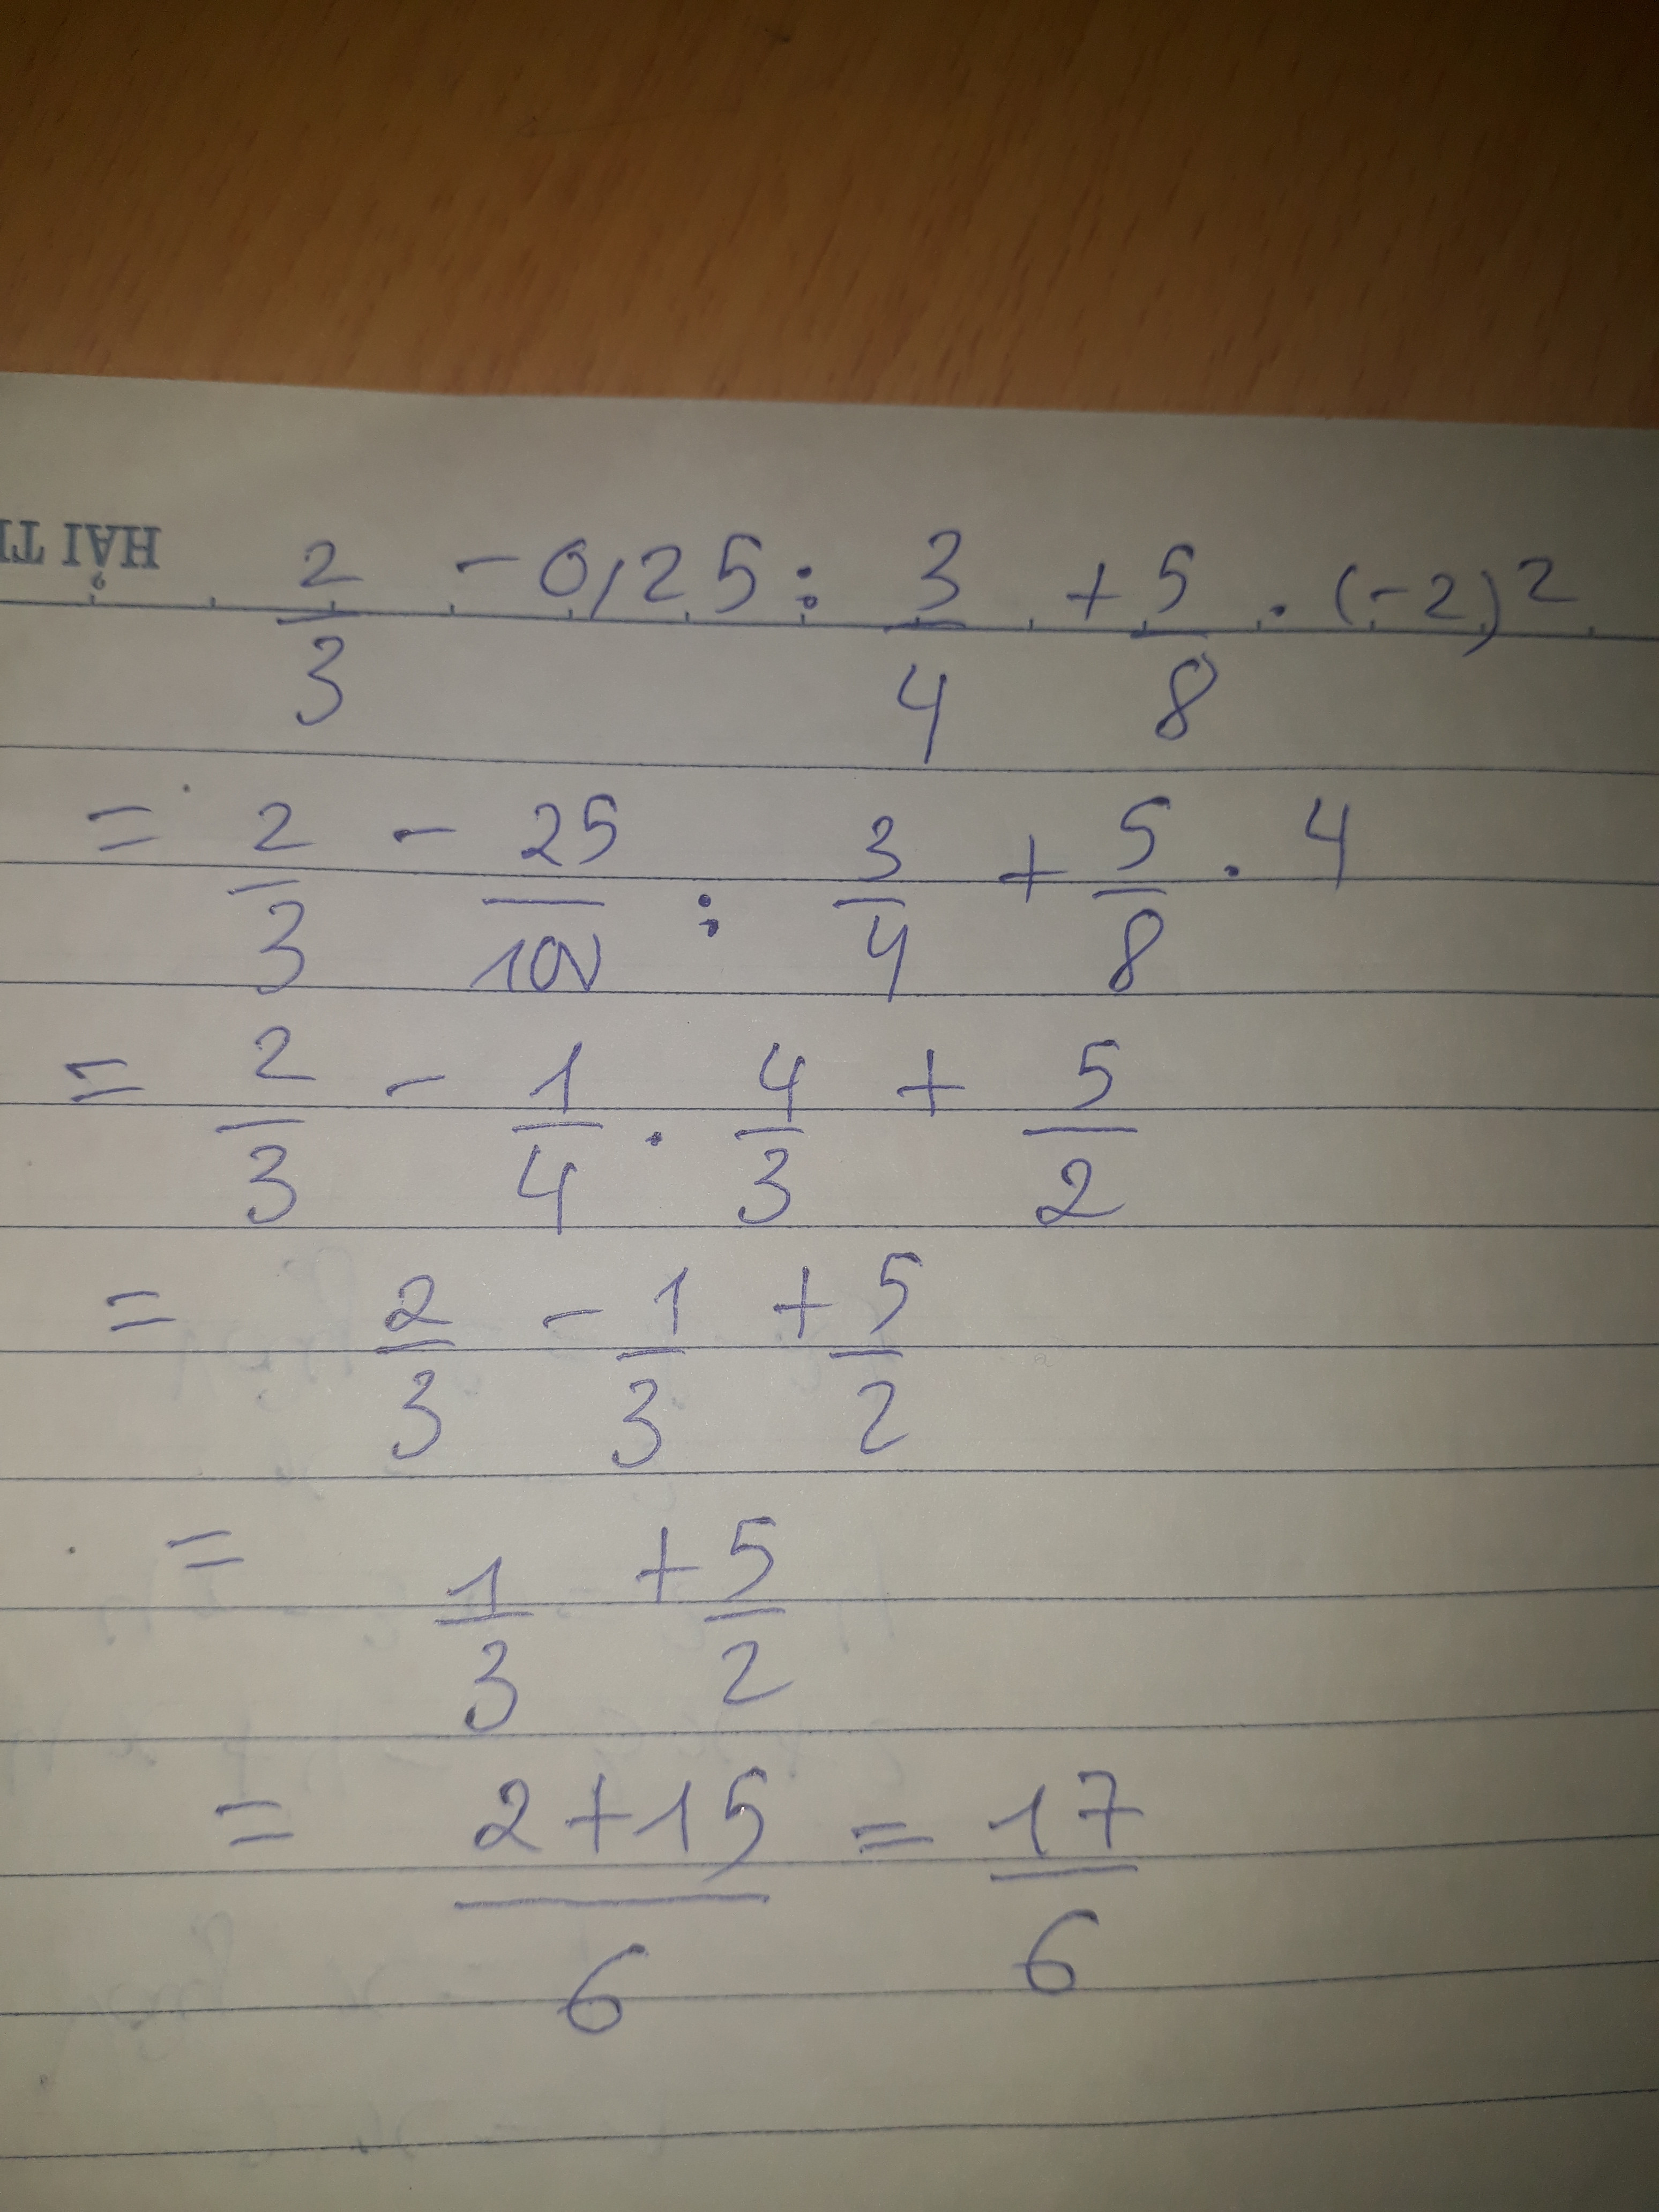 HẢI T
2/3 - 0,25 : 3/4 + 5/8 . (-2)²
= 2/3 - 25/100 : 3/4 + 5/8 . 4
= 2/3 - 1/4 . 4/3 + 5/2
= 2/3 - 1/3 + 5/2
= 1/3 + 5/2
= (2+15)/6 = 17/6